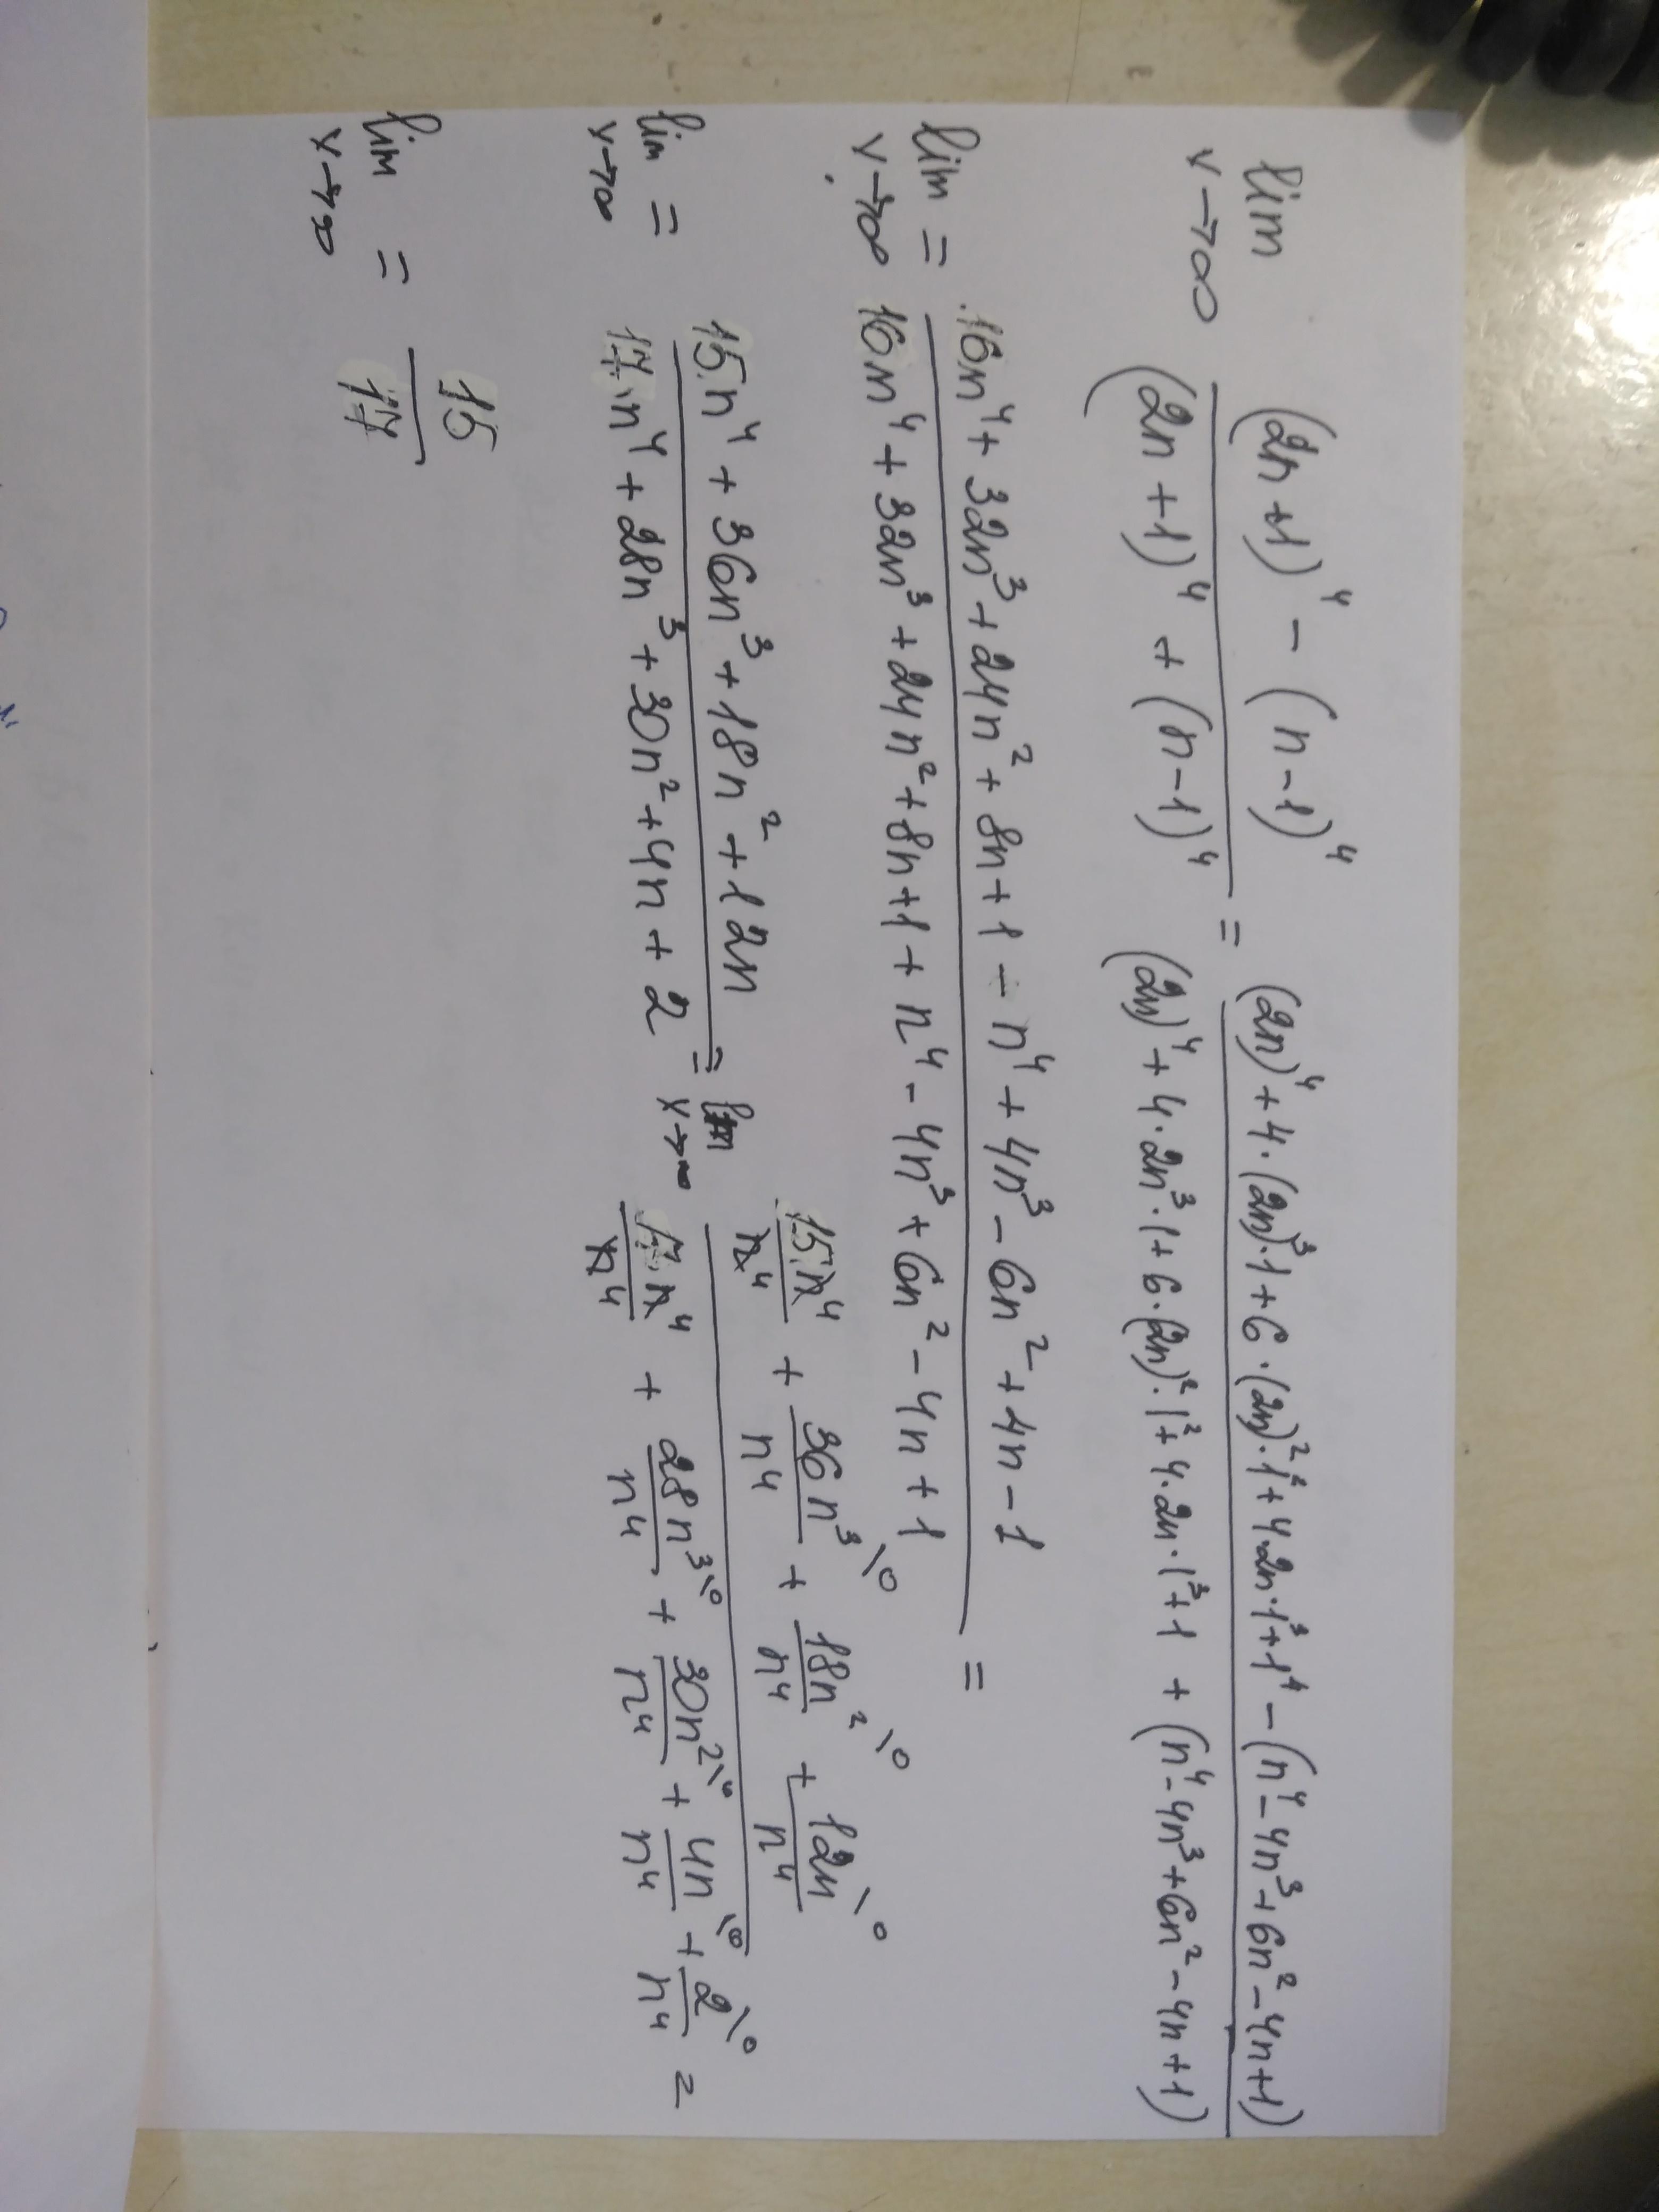 lim x→∞ ((2n+1)⁴ - (n-1)⁴) / ((2n+1)⁴ + (n-1)⁴) = ((2n)⁴ + 4·(2n)³·1 + 6·(2n)²·1² + 4·2n·1³ + 1⁴ - (n⁴ - 4n³ + 6n² - 4n + 1)) / ((2n)⁴ + 4·2n³·1 + 6·(2n)²·1² + 4·2n·1³ + 1 + (n⁴ - 4n³ + 6n² - 4n + 1))
lim x→∞ = (16n⁴ + 32n³ + 24n² + 8n + 1 - n⁴ + 4n³ - 6n² + 4n - 1) / (16n⁴ + 32n³ + 24n² + 8n + 1 + n⁴ - 4n³ + 6n² - 4n + 1) =
lim x→∞ = (15n⁴ + 36n³ + 18n² + 12n) / (17n⁴ + 28n³ + 30n² + 4n + 2) = lim x→∞ (15n⁴/n⁴ + 36n³/n⁴ \0 + 18n²/n⁴ \0 + 12n/n⁴ \0) / (17n⁴/n⁴ + 28n³/n⁴ \0 + 30n²/n⁴ \0 + 4n/n⁴ \0 + 2/n⁴ \0) =
lim x→∞ = 15/17